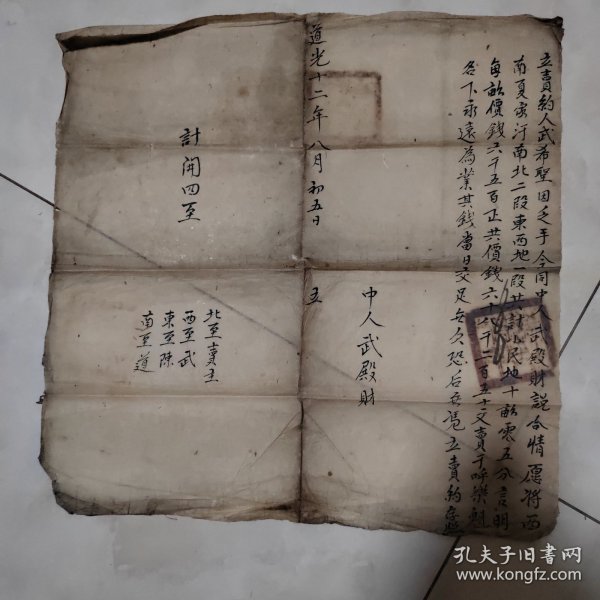 立賣約人武希聖因乏手今同中人武殿財說合情愿將西
南夏家汗南北二段東西地一段共計民地十畝零五分言明
每畝價錢六千五百正共價錢六十八千二百五十文賣于呼樂魁
名下永遠為業其錢當日交足無欠恐后無憑立賣約存照
中人武殿財
道光十二年八月初五日 立
計開四至
北至賣主
西至武
東至陳
南至道
孔夫子旧书网
www.kongfz.com